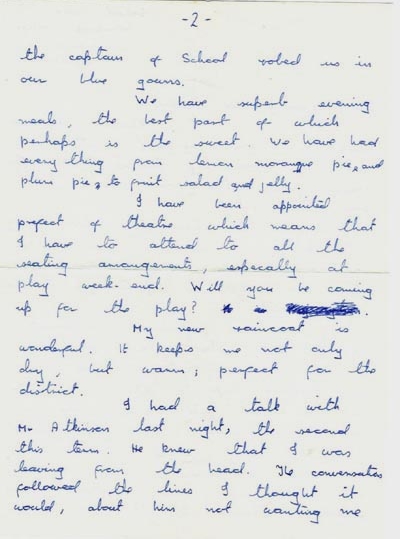 - 2 -
the captain of School robed us in
our blue gowns.
We have superb evening
meals, the best part of which
perhaps is the sweet. We have had
everything from lemon morangue pie, and
plum pie, to fruit salad and jelly.
I have been appointed
prefect of theatre which means that
I have to attend to all the
seating arrangements, especally at
play week-end. Will you be coming
up for the play?
My new raincoat is
wonderful. It keeps me not only
dry, but warm; perfect for the
district.
I had a talk with
Mr Atkinson last night, the second
this term. He knew that I was
leaving from the head. The conversation
followed the lines I thought it
would, about him not wanting me